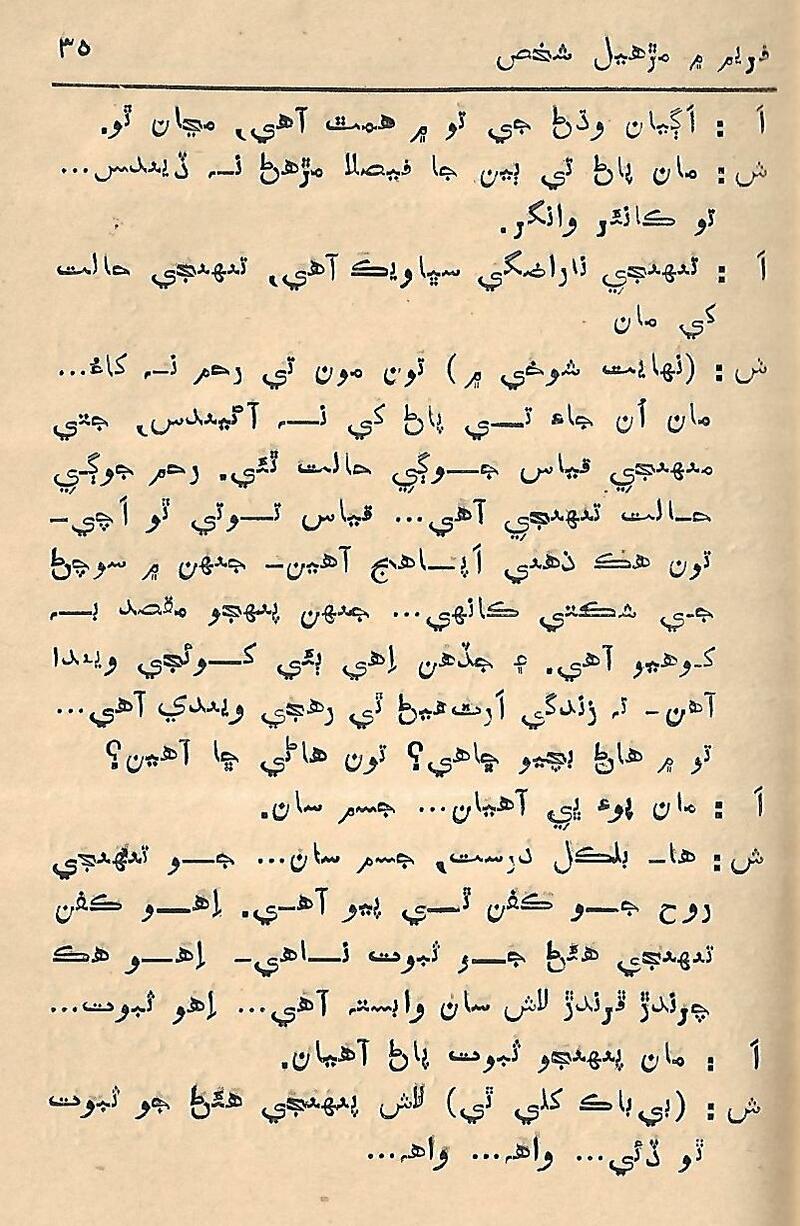 فريم ۾ مڙهيل شخص ٣٥
اَ : اَڳيان وڌڻ جي تو ۾ همت آهي، مڃان ٿو.
ش : مان پاڻ تي ٻين جا فيصلا مڙهڻ نہ ڏيندس...
تو ڪانئر وانگر.
اَ : تنهنجي ناراضگي سڀاويڪ آهي، تنهنجي حالت
کي مان
ش : (نهايت شوخي ۾) تون مون تي رحم نہ کاءُ...
مان اُن جاءِ تي پاڻ کي نہ آڻيندس، جتي
منهنجي قياس جوڳي حالت ٿئي. رحم جوڳي
حالت تنهنجي آهي... قياس توتي ٿو اَچي-
تون هڪ ذهني اَپاهج آهين- جنهن ۾ سوچڻ
جي شڪتي ڪانهي... جنهن پنهجو مقصد بہ
کوهيو آهي. ۽ جڏهن اِهي ٻئي کوئجي ويندا
آهن- تہ زندگي اَرٿهيڻ ٿي رهجي ويندي آهي...
تو ۾ هاڻ بچيو ڇاهي؟ تون هاڻي ڇا آهين؟
اَ : مان پوءِ ڀي آهيان... جسم سان.
ش : ها- بلڪل درست، جسم سان... جو تنهنجي
روح جو ڪفن ٿي پيو آهي. اِهو ڪفن
تنهنجي هئڻ جو ثبوت ناهي- اِهو هڪ
چرندڙ ڦرندڙ لاش سان وابستہ آهي... اِهو ثبوت...
اَ : مان پنهنجو ثبوت پاڻ آهيان.
ش : (بي باڪ کلي ٿي) لاش پنهنجي هئڻ جو ثبوت
ٿو ڏئي... واهہ... واهہ...